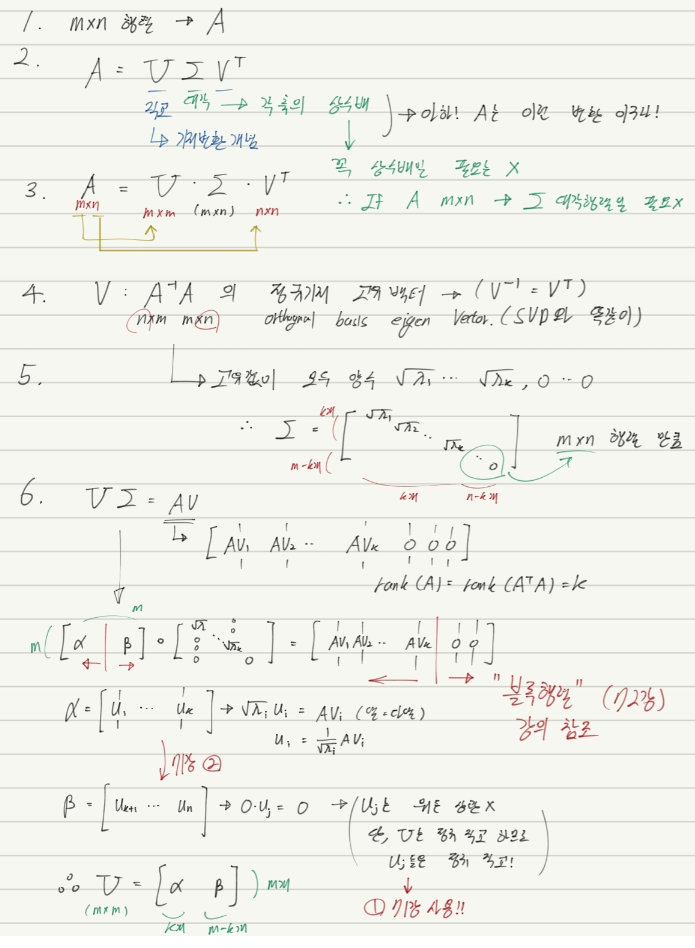 1. m×n 행렬 → A
2.
A = U Σ V^T
직교 대각 → 각 축의 상수배 → 아하! A는 이런 변환 이구나!
↳ 기저변환 개념
꼭 상수배일 필요는 X
3. A = U · Σ · V^T ∴ If A m×n → Σ 대각행렬일 필요X
m×n m×m (m×n) n×n
4. V : A⁻¹A 의 정규기저 고유벡터 → (V⁻¹ = V^T)
n×m m×n orthogonal basis eigen vector. (SVD와 똑같이)
5. ↳ 고유값이 모두 양수 √λ₁ ⋯ √λₖ, 0 ⋯ 0
∴ Σ = [ √λ₁ √λ₂ ⋱ √λₖ ⋱ 0 ] m×n 행렬 만큼
k개
m-k개
k개 n-k개
6. U Σ = AV
↳ [ AV₁ AV₂ ⋯ AVₖ 0 0 0 ]
rank(A) = rank(A^TA) = k
m
m( [ α | β ] ∘ [ √λ₁ ⋱ √λₖ 0 ] = [ AV₁ AV₂ ⋯ AVₖ | 0 0 ]
"블록행렬" (72강)
강의 참조
α = [ u₁ ⋯ uₖ ] → √λᵢ uᵢ = AVᵢ
uᵢ = 1/√λᵢ AVᵢ
↓ 기강 ②
β = [ uₖ₊₁ ⋯ uₙ ] → 0·uⱼ = 0 → ( uⱼ는 뭐든 상관 X
단, U는 정규 직교 하므로
uⱼ들은 정규 직교! )
∴ U = [ α β ] ) m개
(m×m) k개 m-k개
① 기강 사용!!